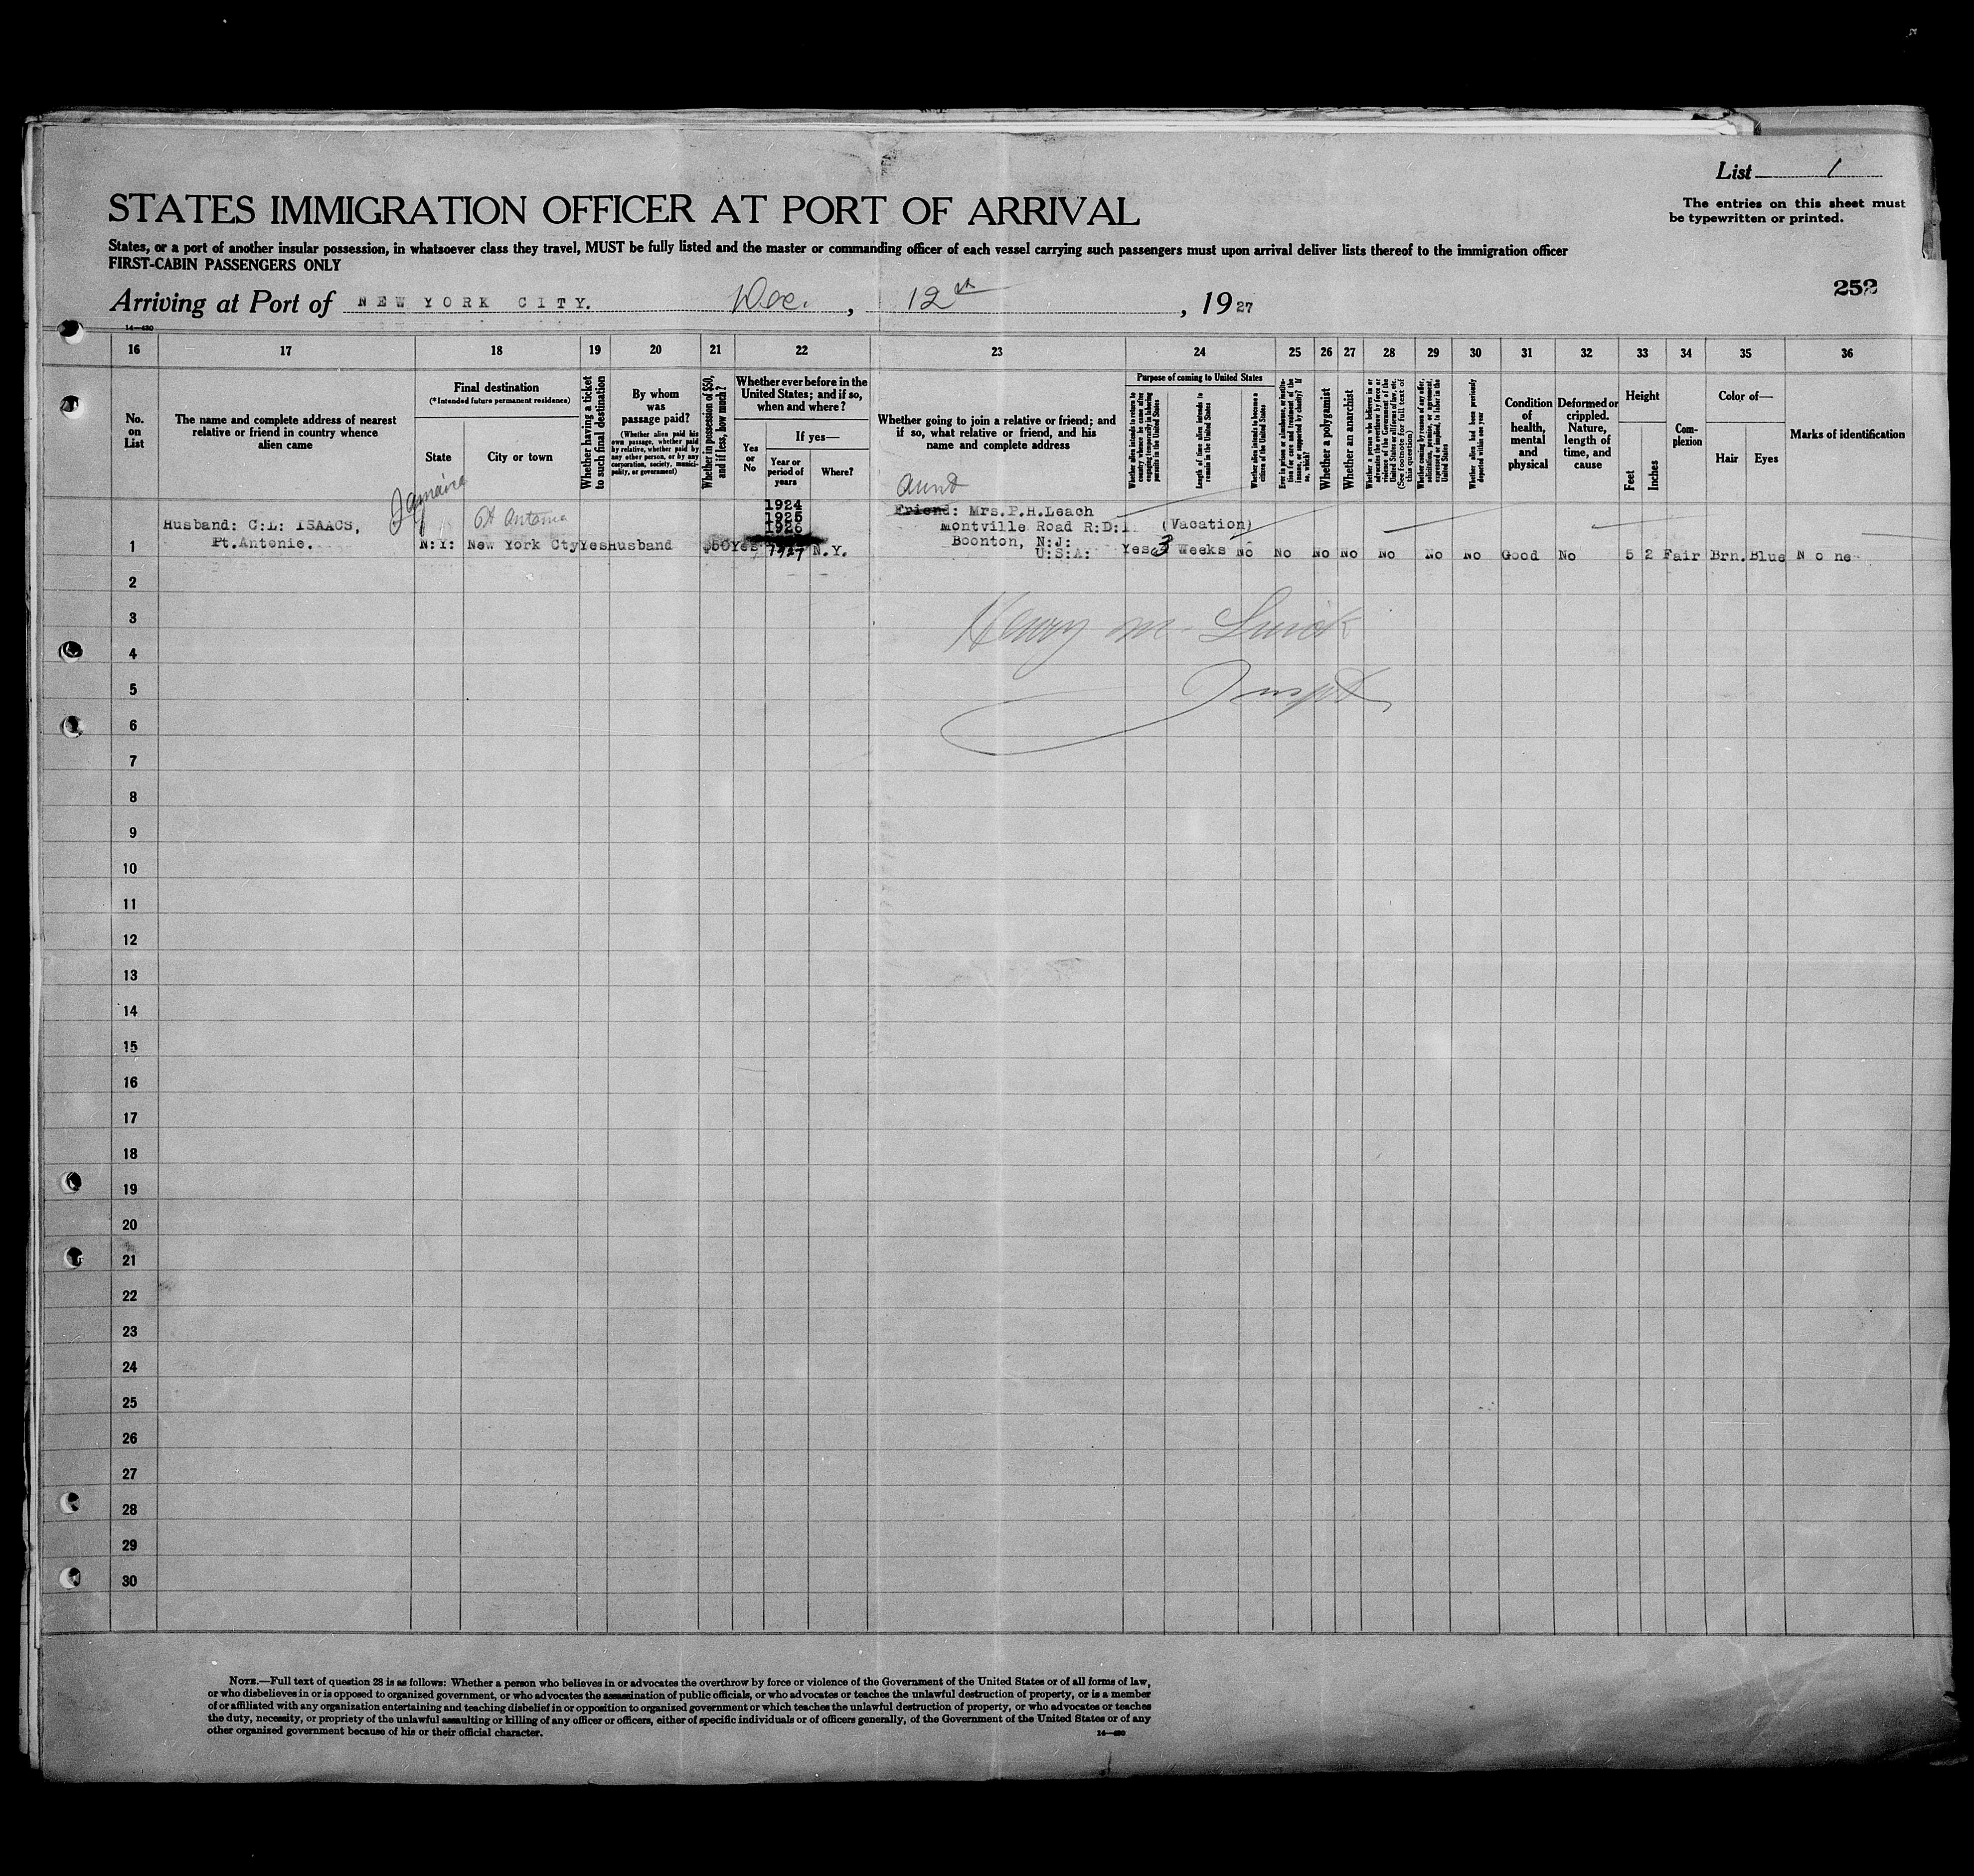 List 1
The entries on this sheet must
be typewritten or printed.
STATES IMMIGRATION OFFICER AT PORT OF ARRIVAL
States, or a port of another insular possession, in whatsoever class they travel, MUST be fully listed and the master or commanding officer of each vessel carrying such passengers must upon arrival deliver lists thereof to the immigration officer
FIRST-CABIN PASSENGERS ONLY
252
Arriving at Port of NEW YORK CITY. Dec. , 12th , 1927
14—430
16 17 18 19 20 21 22 23 24 25 26 27 28 29 30 31 32 33 34 35 36
No.
on
List
The name and complete address of nearest
relative or friend in country whence
alien came
Final destination
(*Intended future permanent residence)
State
City or town
Whether having a ticket
to such final destination
By whom
was
passage paid?
(Whether alien paid his
own passage, whether paid
by relative, whether paid by
any other person, or by any
corporation, society, munici-
pality, or government)
Whether in possession of $50,
and if less, how much?
Whether ever before in the
United States; and if so,
when and where?
Yes
or
No
If yes—
Year or
period of
years
Where?
Whether going to join a relative or friend; and
if so, what relative or friend, and his
name and complete address
Purpose of coming to United States
Whether alien intends to return to
country whence he came after
engaging temporarily in laboring
pursuits in the United States
Length of time alien intends to
remain in the United States
Whether alien intends to become a
citizen of the United States
Ever in prison or almshouse, or institu-
tion for care and treatment of the
insane, or supported by charity? If
so, which?
Whether a polygamist
Whether an anarchist
Whether a person who believes in or
advocates the overthrow by force or
violence of the Government of the
United States or all forms of law, etc.
(See footnote for full text of
this question)
Whether coming by reason of any offer,
solicitation, promise, or agreement,
expressed or implied, to labor in the
United States
Whether alien had been previously
deported within one year
Condition
of
health,
mental
and
physical
Deformed or
crippled.
Nature,
length of
time, and
cause
Height
Feet
Inches
Com-
plexion
Color of—
Hair
Eyes
Marks of identification
Jamaica
Pt Antonio
Aunt
1924
1925
1926
1927
Husband: C:L: ISAACS,
Pt.Antonio.
Friend: Mrs.P.H.Leach
Montville Road R:D:1. (Vacation)
Boonton, N:J:
U:S:A:
1 N:Y: New York Cty Yes Husband $50 Yes N.Y. Yes 3 Weeks No No No No No No No Good No 5 2 Fair Brn. Blue None
2
3
Henry M.
4
5
Inspt
6
7
8
9
10
11
12
13
14
15
16
17
18
19
20
21
22
23
24
25
26
27
28
29
30
NOTE.—Full text of question 28 is as follows: Whether a person who believes in or advocates the overthrow by force or violence of the Government of the United States or of all forms of law,
or who disbelieves in or is opposed to organized government, or who advocates the assassination of public officials, or who advocates or teaches the unlawful destruction of property, or is a member
of or affiliated with any organization entertaining and teaching disbelief in or opposition to organized government or which teaches the unlawful destruction of property, or who advocates or teaches
the duty, necessity, or propriety of the unlawful assaulting or killing of any officer or officers, either of specific individuals or of officers generally, of the Government of the United States or of any
other organized government because of his or their official character.
14—430